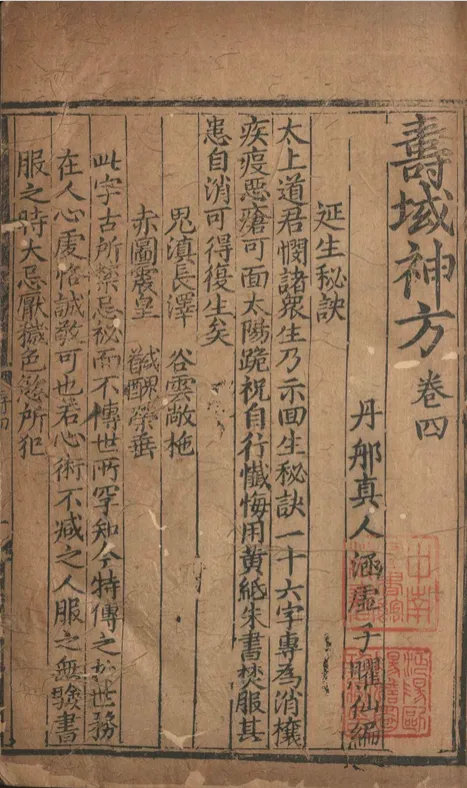 壽域神方 卷四
丹邱真人涵虛子臞仙編
延生秘訣
太上道君憫諸衆生乃示回生秘訣一十六字專為消禳
疾疫惡瘡可面太陽跪祝自行懺悔用黃紙朱書焚服其
患自消可得復生矣
滇長澤 谷雲敞柂
赤圖震皇 鹹榮垂
此字古所禁忌祕而不傳世所罕知今特傳之於世務
在人心虔恪誠敬可也若心術不減之人服之無驗書
服之時大忌厭穢色慾所犯